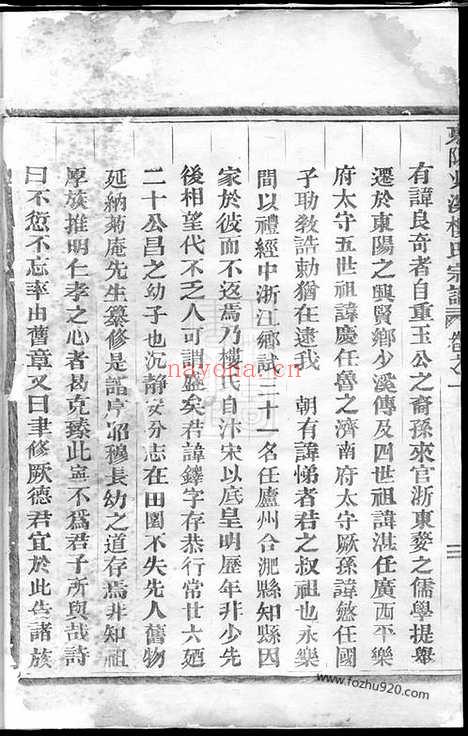 有諱良奇者自重玉公之裔孫來官浙東婺之儒學提舉
遷於東陽之興賢鄉少溪傳及四世祖諱湛任廣西平樂
府太守五世祖諱慶任魯之濟南府太守厥孫諱慾任國
子助教誥勅猶在逮我 朝有諱悌者君之叔祖也永樂
間以禮經中浙江鄉試三十一名任廬州合淝縣知縣因
家於彼而不返焉乃樓氏自汴宋以底皇明歷年非少先
後相望代不乏人可謂盛矣君諱鐸字存恭行常廿六廼
二十公昌之幼子也沉静安分志在田園不失先人舊物
延納菊庵先生纂修是譜序昭穆長幼之道存焉非知祖
厚族推明仁孝之心者曷克臻此寧不為君子所與哉詩
曰不愆不忘率由舊章又曰聿修厥德君宜於此告諸族
nayona.cn
www.fozhu920.com